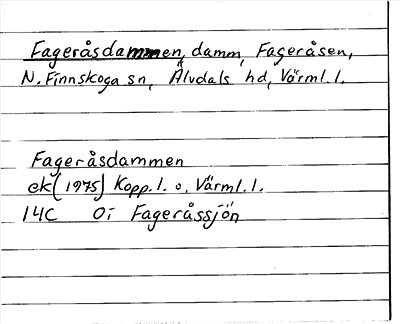 Fageråsdammen, damm, Fageråsen,
N. Finnskoga sn, Älvdals hd, Värml. l.
Fageråsdammen
ek (1975) Kopp. l. o. Värml. l.
14C Öi Fageråssjön